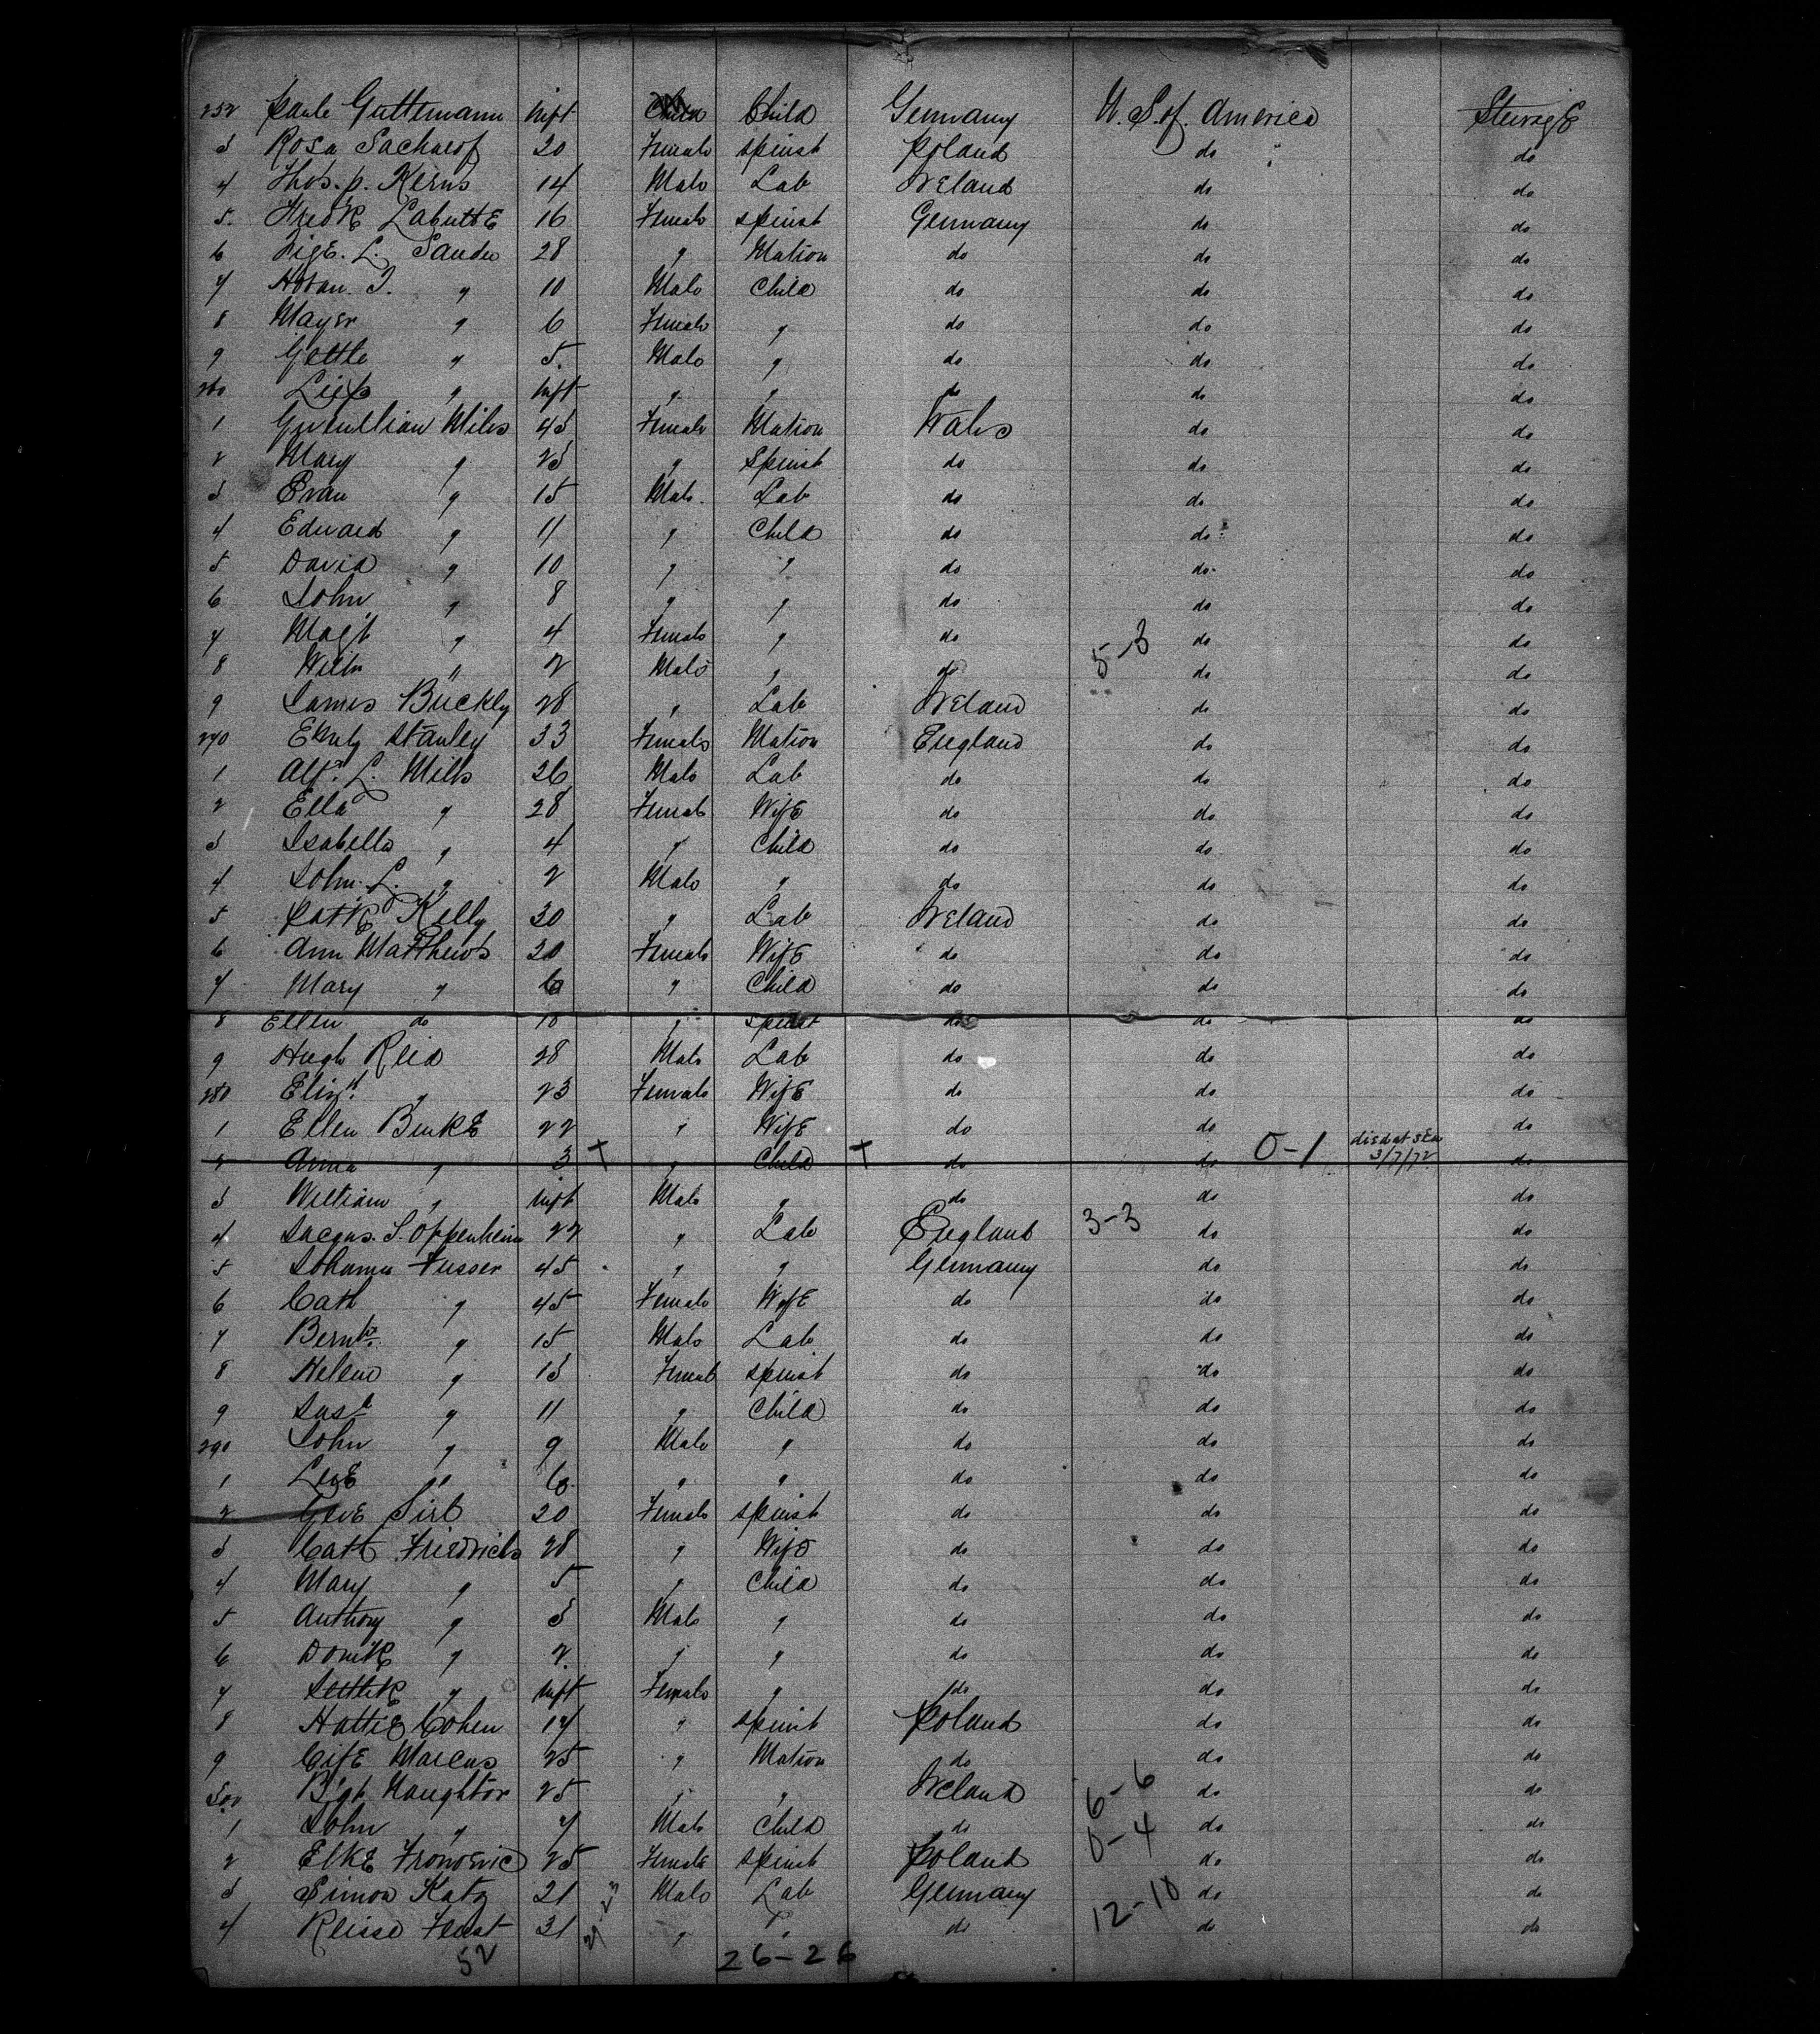 252 Paule Guttemann Inft Child Germany U. S. of America Steerage
3 Rosa Sacharof 20 Female Spinst Poland do do
4 Thos. P. Kerns 14 Male Lab Ireland do do
5. Fredk Labutte 16 Female Spinst Germany do do
6 L. Sander 28 " Matron do do do
7 " 10 Male Child do do do
8 Mayer " 6 Female " do do do
9 Gettle " 5. Male " do do do
260 " Inft " " do do do
1 Miles 45 Female Matron Wales do do
2 Mary " 23 " Spinst do do do
3 Evan " 15 Male. Lab do do do
4 Edward " 11 " Child do do do
5 David " 10 " " do do do
6 John " 8 " " do do do
7 Magt " 4 Female " do 5-3 do do
8 Willm " 2 Male " do do do
9 James Buckly 28 " Lab Ireland do do
270 Emly Stanley 33 Female Matron England do do
1 Alfd. L. Mills 26 Male Lab do do do
2 Ella " 28 Female Wife do do do
3 Isabella " 4 " Child do do do
4 John. L. " 2 Male " do do do
5 Patk Kelly 30 " Lab Ireland do do
6 Ann Matthews 20 Female Wife do do do
7 Mary " 6 " Child do do do
8 Ellen do 18 " Spinst do do do
9 Hugh Reid 28 Male Lab do do do
280 Elizth " 23 Female Wife do do do
1 Ellen Burke 22 " Wife do do do
2 Anna " 3 + " Child + do do 0-1 died at sea 3/7/72 do
3 William " Inft Male " do do do
4 Jacques. S. Oppenheim 22 " Lab England 3-3 do do
5 Johanna Fusser 45 " " Germany do do
6 Cath " 45 Female Wife do do do
7 Bernhd. " 15 Male Lab do do do
8 Helena " 13 Female Spinst do do do
9 " 11 " Child do do do
290 John " 9 Male " do do do
1 " 6 " " do do do
2 Sirl 20 Female Spinst do do do
3 Cath Friedrichs 28 " Wife do do do
4 Mary " 5 " Child do do do
5 Anthony " 3 Male " do do do
6 " 2 " " do do do
7 " Inft Female " do do do
8 Hattie Cohen 17 " Spinst Poland do do
9 Marcus 25 " Matron do do do
300 Bigt Naughton 25 " " Ireland 6-6 do do
1 John " 7 Male Child do 0-4 do do
2 Elke 25 Female Spinst Poland do do
3 Simon Katz 21 Male Lab Germany 12-10 do do
4 31 " " do do do
52 26-26